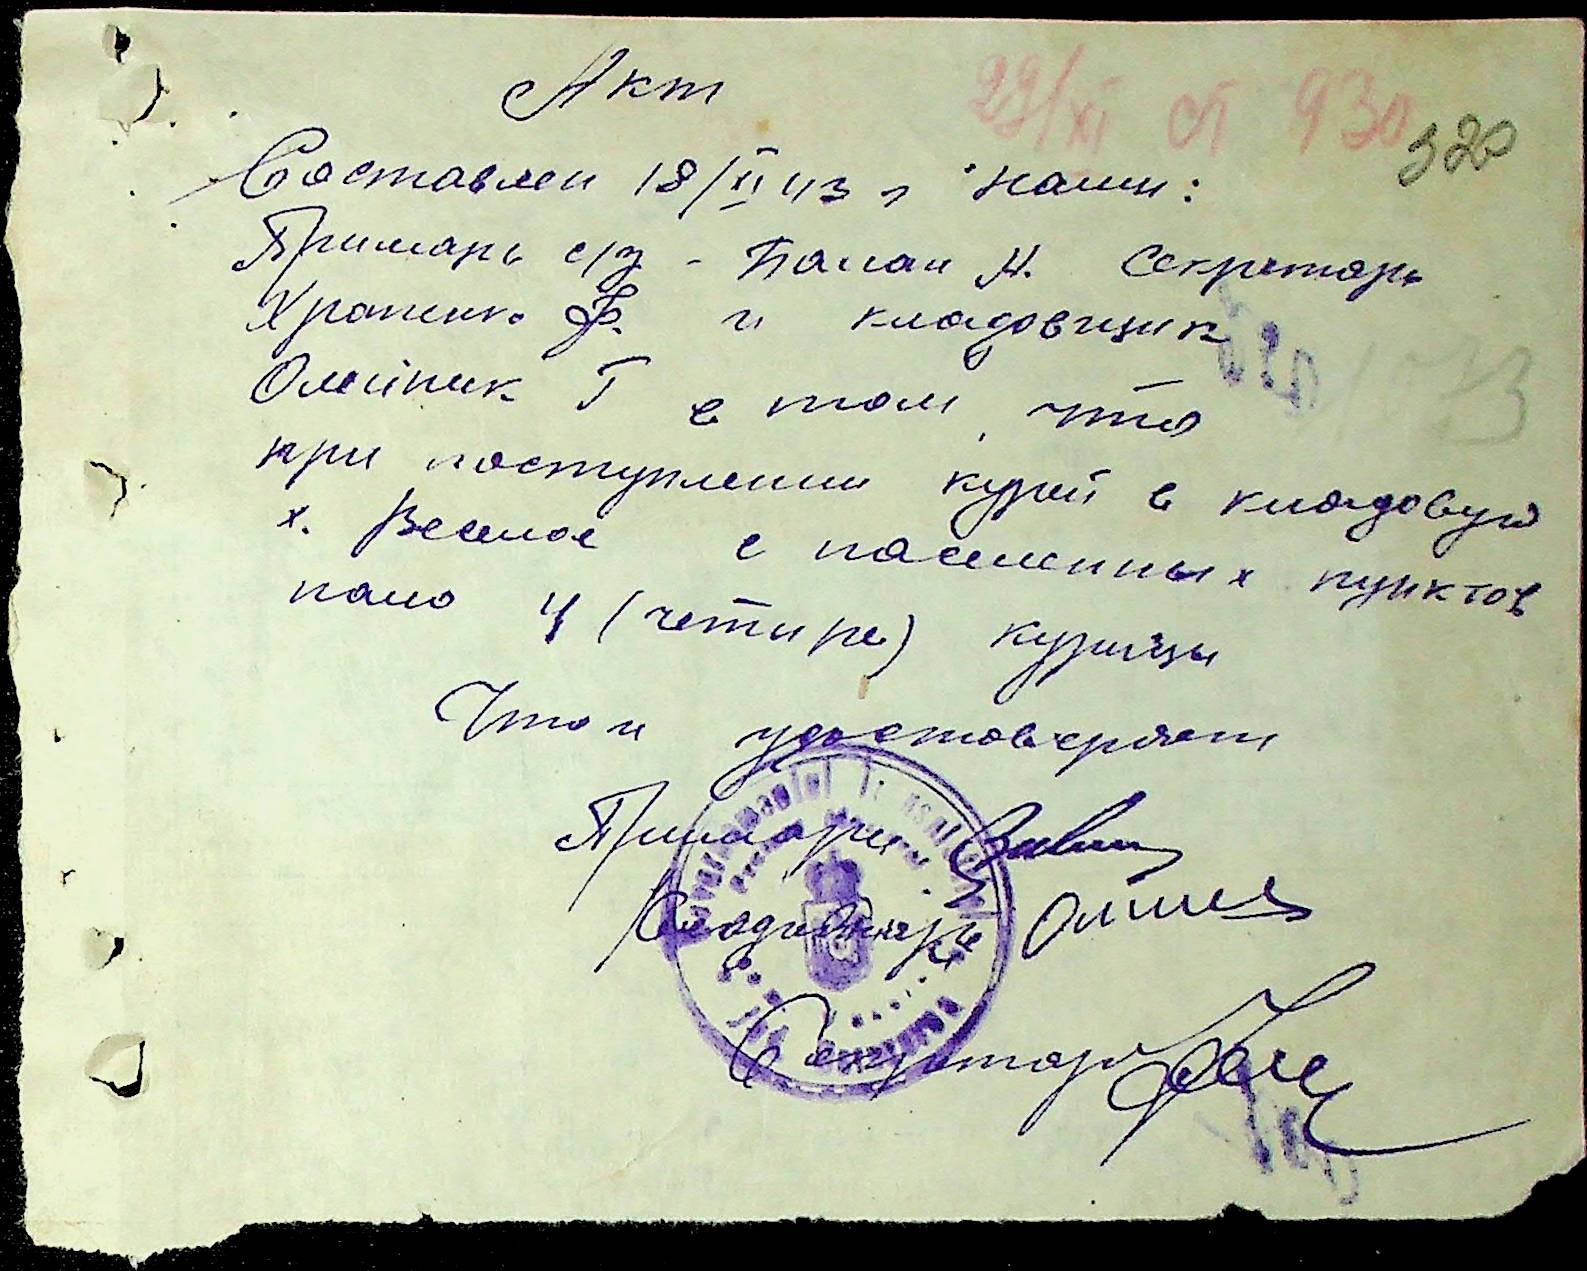 Акт
29/XI ст 930
320
Составлен 18/II 43 г нами:
Примарь с/з - Балан И. Секретарь
Храпенко Ф. и кладовщик
Олейник Г в том, что
при поступлении курей в кладовую
х. Веселое с населенных пунктов
пало 4 (четире) курицы
Что и удостоверяем
Примарь
Кладовщик
Секретарь